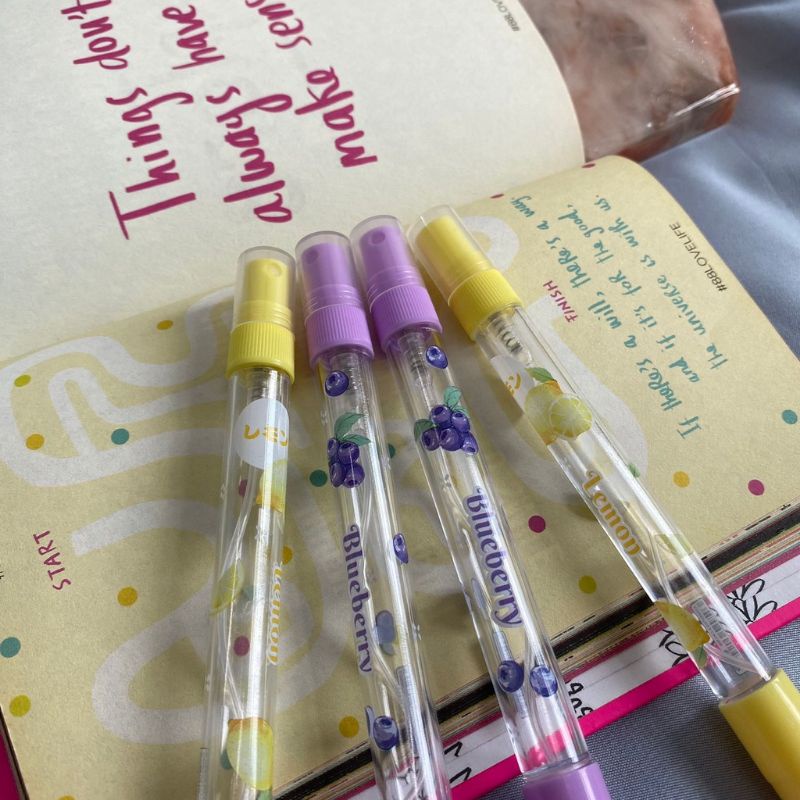 Things don't
always have
make sens
#88LOVELIFE
If there's a will, there's a way,
and if it's for the good,
the universe is with us.
FINISH
START
Lemon
Blueberry
Blueberry
Lemon